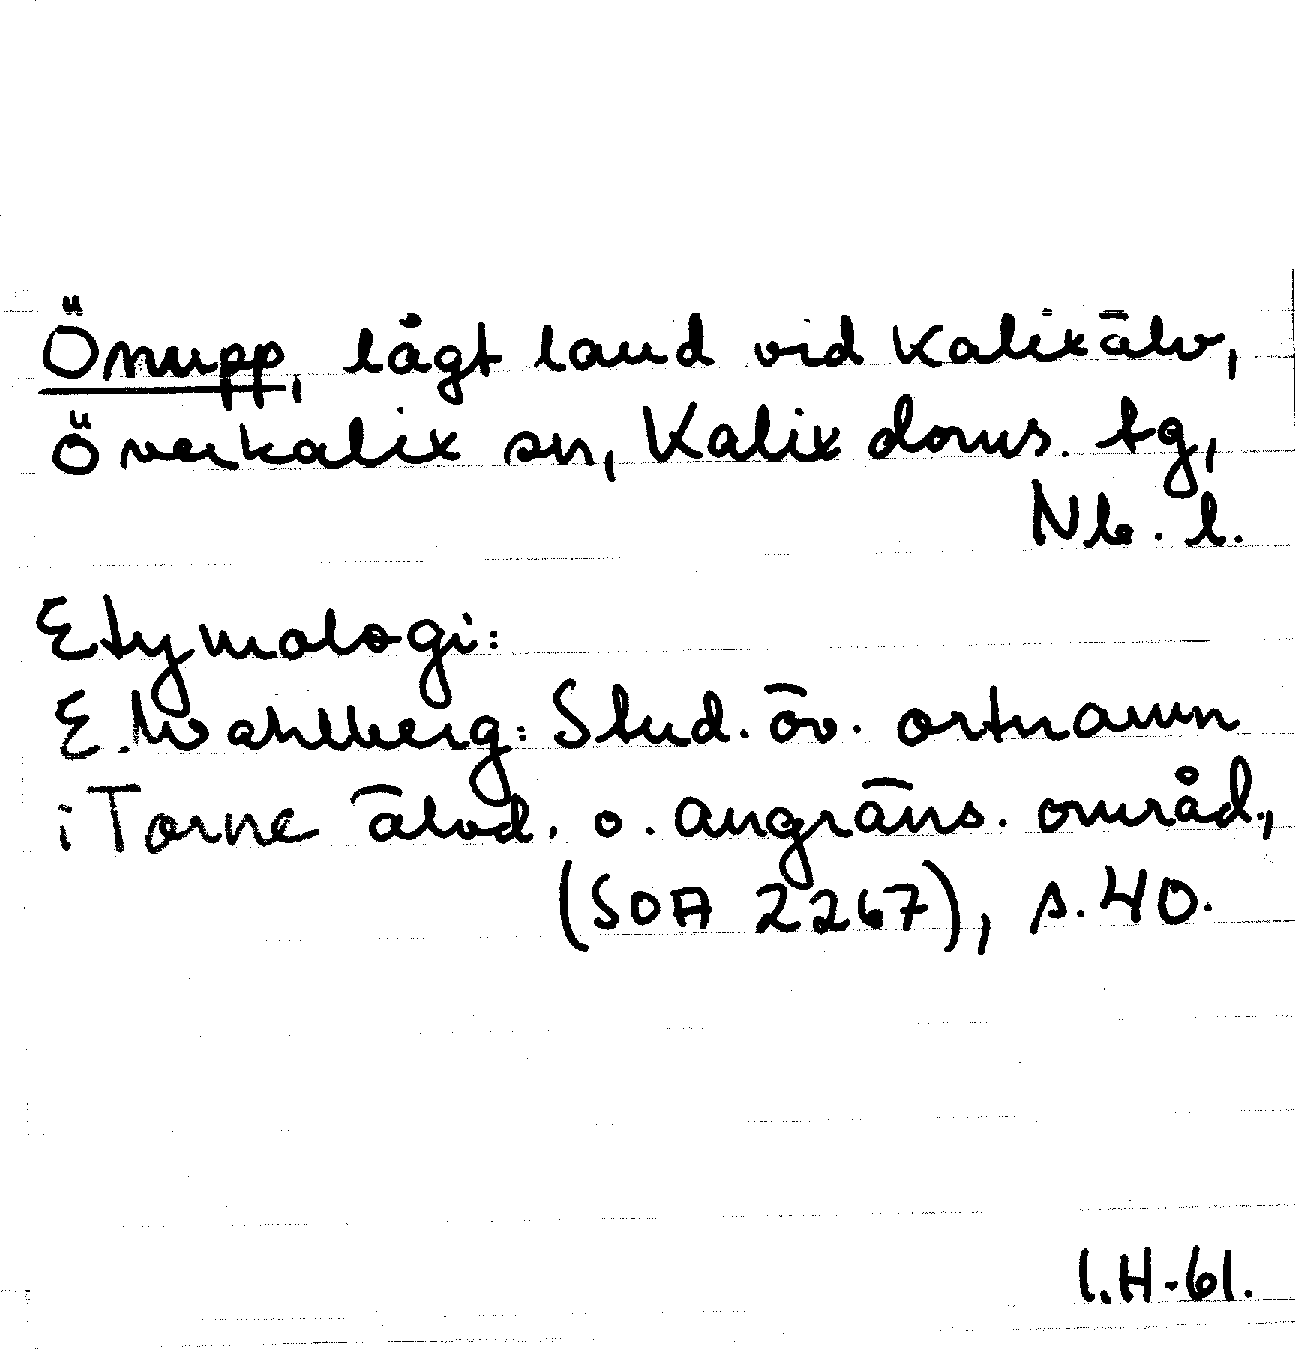 Önupp, lågt land vid Kalixälv,
Överkalix sn, Kalix doms. tg,
Nb. l.
Etymologi:
E. Wahlberg: Stud. öv. ortnamn
i Torne älvd. o. angräns. områd.,
(SOA 2267), s. 40.
I.H-61.